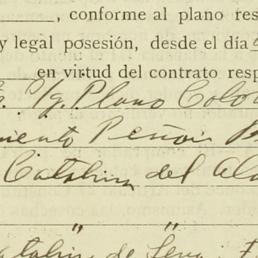 , conforme al plano res
y legal posesión, desde el día
en virtud del contrato resp
P/g. Plano Colo
miento Peñon B
Catalina del Ala
" "
atalina de Leng